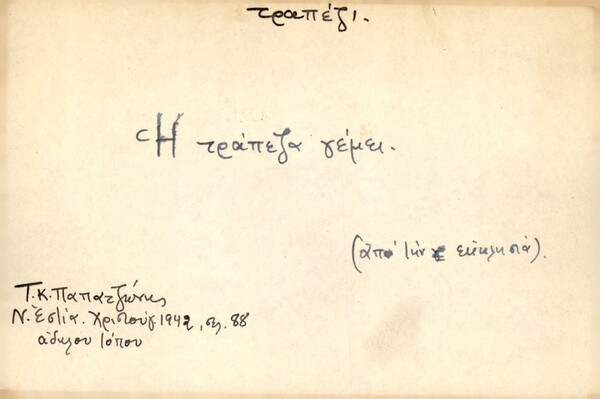 τραπέζι.
Ἡ τράπεζα γέμει.
(ἀπὸ τὴν ἐκκλησιά).
Τ.Κ. Παπατζώνης
Ν. Ἑστία. Χριστούγ 1942, σελ. 88
ἀδήλου τόπου